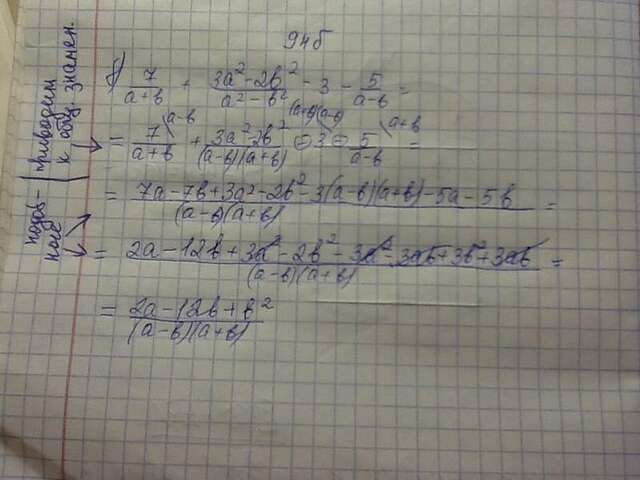 94б
б) 7/(a+b) + (3a²-2b²)/(a²-b²) - 3 - 5/(a-b) =
= 7/(a+b) \a-b + (3a²-2b²)/((a-b)(a+b)) - 3 \(a+b)(a-b) - 5/(a-b) \a+b =
= (7a-7b+3a²-2b²-3(a-b)(a+b)-5a-5b)/((a-b)(a+b)) =
= (2a-12b+3a²-2b²-3a²-3ab+3b²+3ab)/((a-b)(a+b)) =
= (2a-12b+b²)/((a-b)(a+b))
приводим
к общ. знамен.
подоб-
ные